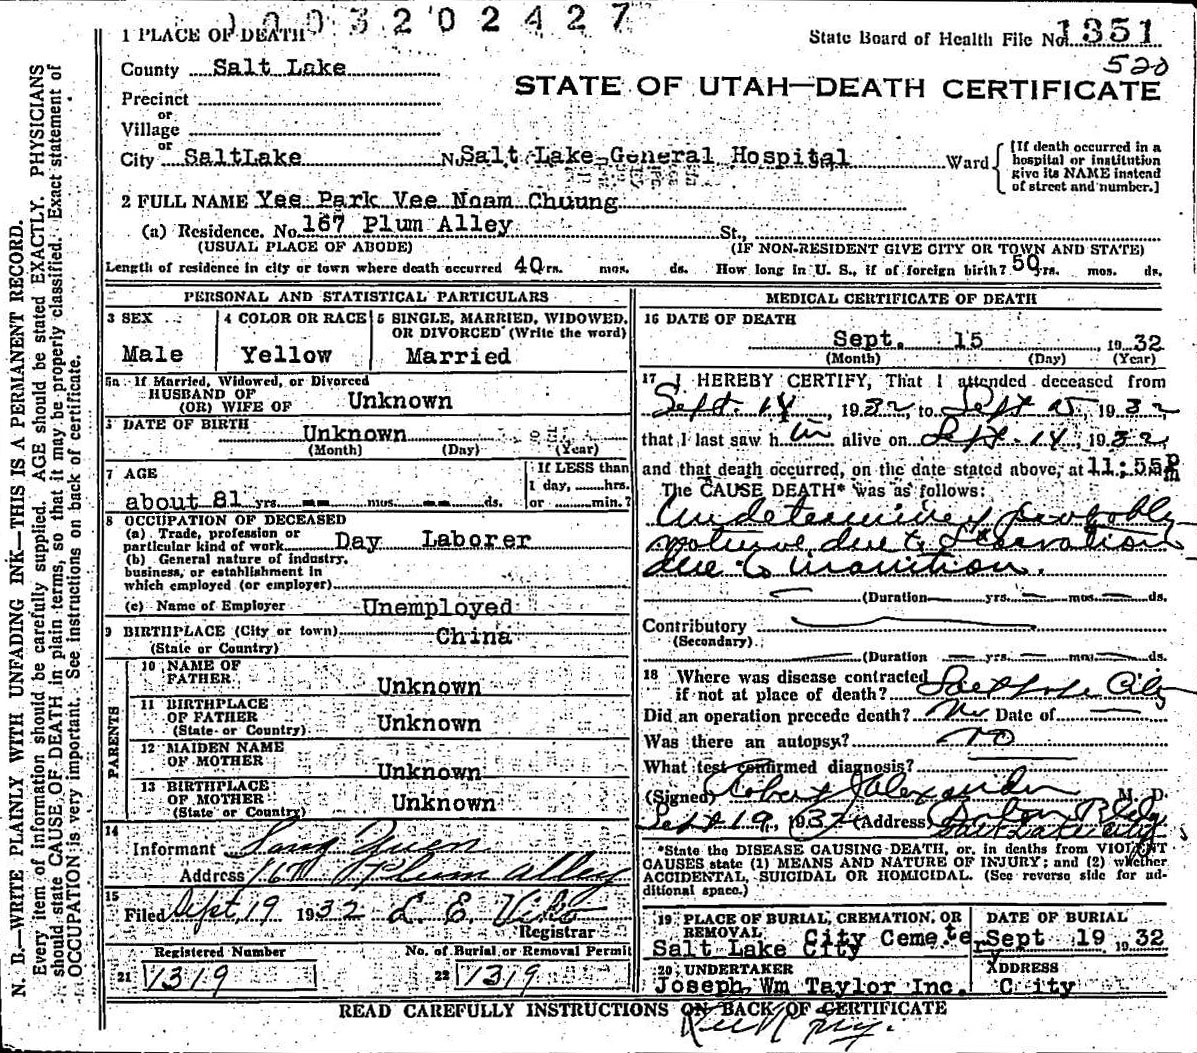 1003202427
1 PLACE OF DEATH
State Board of Health File No. 1351
County Salt Lake
520
STATE OF UTAH—DEATH CERTIFICATE
Precinct
or
Village
or
City SaltLake No. Salt Lake General Hospital Ward
[If death occurred in a hospital or institution give its NAME instead of street and number.]
2 FULL NAME Yee Park Vee Noam Chuung
(a) Residence. No. 167 Plum Alley St.,
(USUAL PLACE OF ABODE) (IF NON-RESIDENT GIVE CITY OR TOWN AND STATE)
Length of residence in city or town where death occurred 40 yrs. mos. ds. How long in U. S., if of foreign birth? 50 yrs. mos. ds.
PERSONAL AND STATISTICAL PARTICULARS
3 SEX 4 COLOR OR RACE 5 SINGLE, MARRIED, WIDOWED, OR DIVORCED (Write the word)
Male Yellow Married
5a If Married, Widowed, or Divorced
HUSBAND OF
(OR) WIFE OF Unknown
DATE OF BIRTH Unknown
(Month) (Day) (Year)
7 AGE
If LESS than
1 day, hrs.
or min.?
about 81 yrs. -- mos. -- ds.
8 OCCUPATION OF DECEASED
(a) Trade, profession or
particular kind of work Day Laborer
(b) General nature of industry,
business, or establishment in
which employed (or employer)
(c) Name of Employer Unemployed
9 BIRTHPLACE (City or town) China
(State or Country)
PARENTS
10 NAME OF
FATHER Unknown
11 BIRTHPLACE
OF FATHER Unknown
(State or Country)
12 MAIDEN NAME
OF MOTHER Unknown
13 BIRTHPLACE
OF MOTHER Unknown
(State or Country)
14
Informant
Address Plum Alley
15
Filed Sept 19 1932
Registrar
Registered Number No. of Burial or Removal Permit
21 1319 22 1319
MEDICAL CERTIFICATE OF DEATH
16 DATE OF DEATH
Sept. 15 1932
(Month) (Day) (Year)
17 I HEREBY CERTIFY, That I attended deceased from
Sept. 14, 1932, to Sept 15, 1932
that I last saw him alive on Sept. 14, 1932,
and that death occurred, on the date stated above, at 11:55pm
The CAUSE DEATH* was as follows:
Undetermined probably
natural due to Starvation
due to inanition.
(Duration — yrs. — mos. — ds.
Contributory
(Secondary)
(Duration — yrs. — mos. — ds.
18 Where was disease contracted
if not at place of death? Salt Lake City
Did an operation precede death? No Date of —
Was there an autopsy? no
What test confirmed diagnosis?
(Signed) Robert Alexander M. D.
Sept 19, 1932 (Address) Bldg
Salt Lake City
*State the DISEASE CAUSING DEATH, or, in deaths from VIOLENT
CAUSES state (1) MEANS AND NATURE OF INJURY; and (2) whether
ACCIDENTAL, SUICIDAL OR HOMICIDAL. (See reverse side for ad-
ditional space.)
19 PLACE OF BURIAL, CREMATION, OR REMOVAL DATE OF BURIAL
City Cemetery
Salt Lake City Sept 19 1932
20 UNDERTAKER ADDRESS
Joseph Wm Taylor Inc. City
READ CAREFULLY INSTRUCTIONS ON BACK OF CERTIFICATE
N. B.—WRITE PLAINLY WITH UNFADING INK—THIS IS A PERMANENT RECORD.
Every item of information should be carefully supplied. AGE should be stated EXACTLY. PHYSICIANS
should state CAUSE OF DEATH in plain terms, so that it may be properly classified. Exact statement of
OCCUPATION is very important. See instructions on back of certificate.